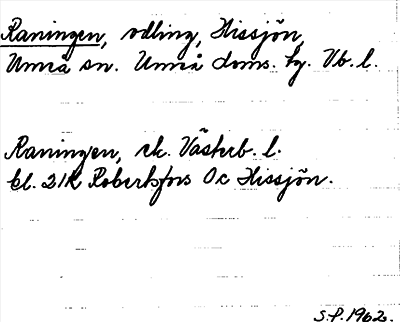 Raningen, odling, Hissjön,
Umeå sn. Umeå doms. hg. Vb. l.
Raningen, ek. Västerb. l.
bl. 21K Robertsfors Oc Hissjön.
S.P. 1962.